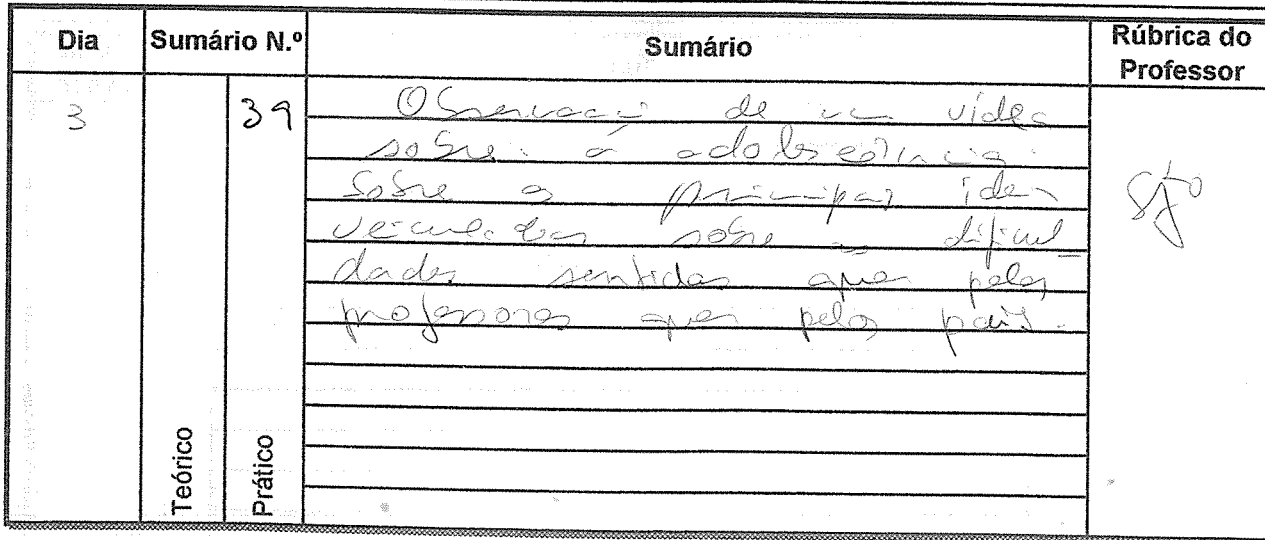 Dia Sumário N.º Sumário Rúbrica do Professor
3 39 Observação de um vídeo
sobre a adolescência.
Sobre as principais ideias
veiculadas sobre as dificul
dades sentidas quer pelos
professores quer pelos pais.
Teórico Prático